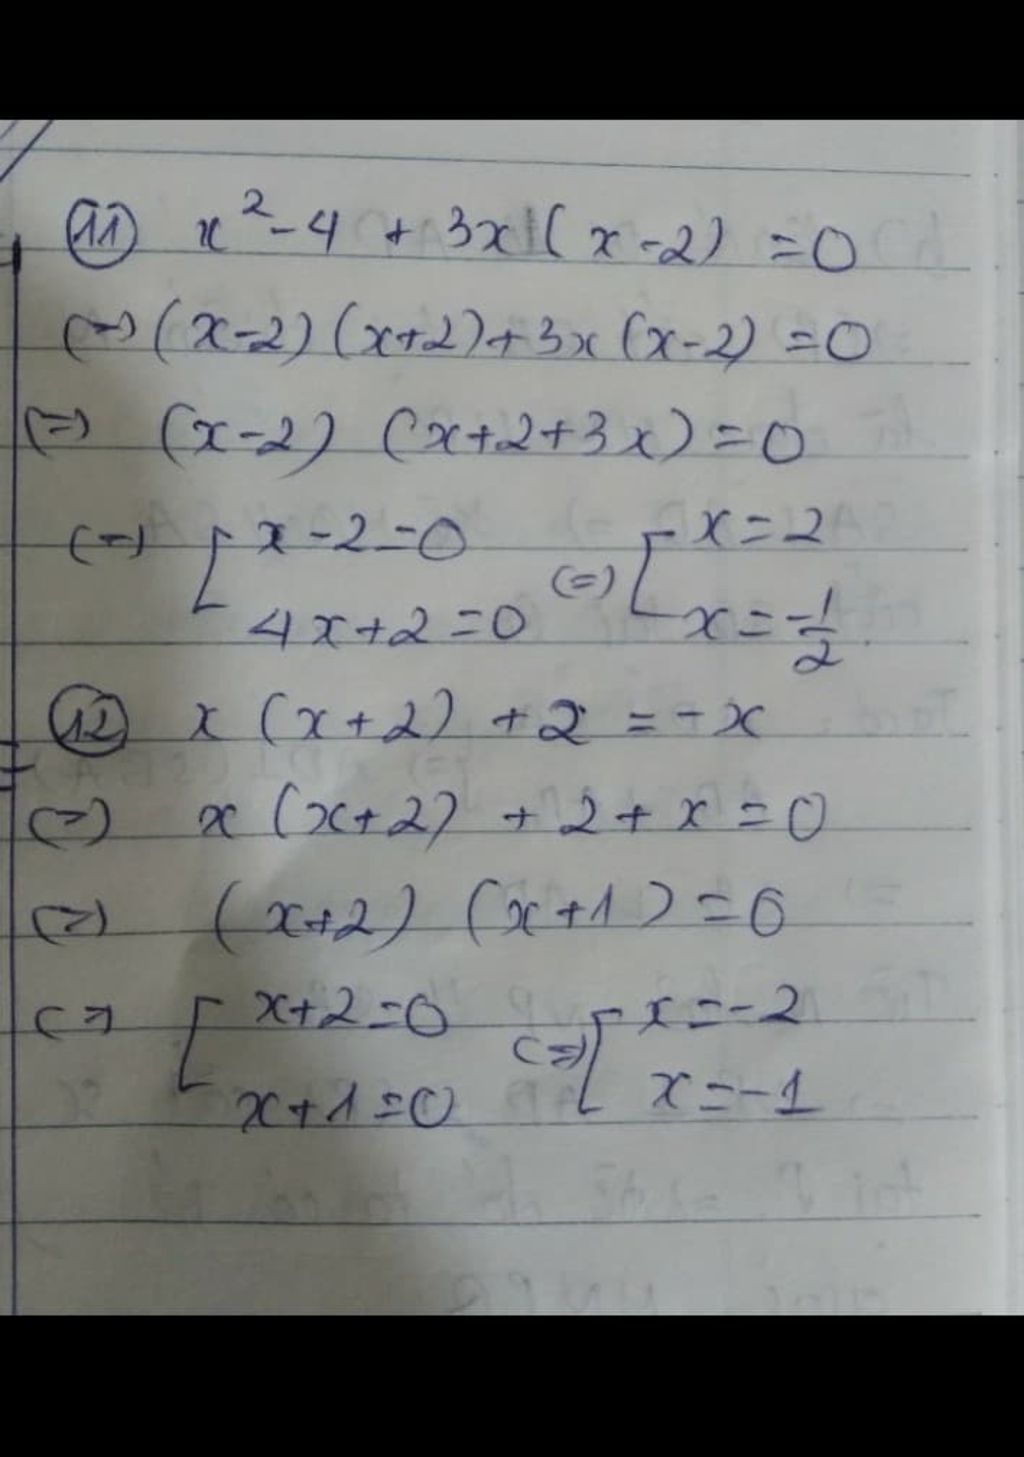 11 x² - 4 + 3x(x-2) = 0
(=) (x-2)(x+2)+3x(x-2) = 0
(=) (x-2) (x+2+3x) = 0
(=) [ x-2=0 (=) [ x=2
4x+2=0 x=-1/2
12 x (x+2) + 2 = -x
(=) x (x+2) + 2 + x = 0
(=) (x+2) (x+1) = 0
(=) [ x+2=0 (=) [ x=-2
x+1=0 x=-1